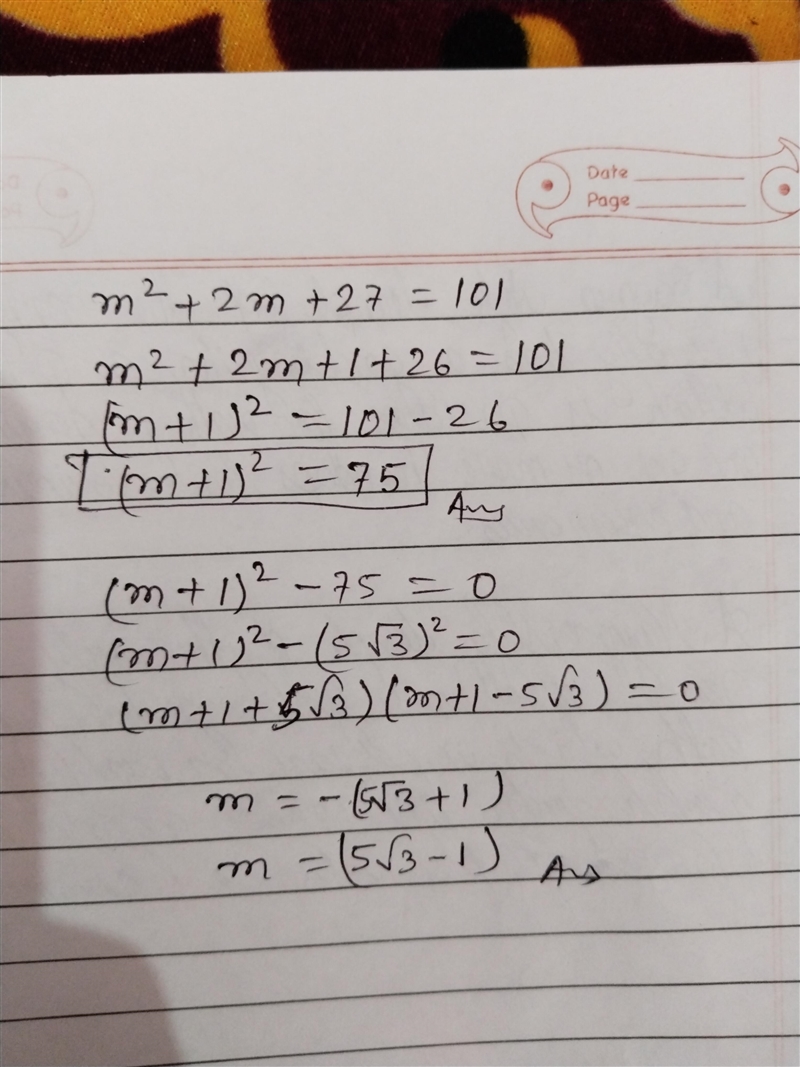 Date
Page
m² + 2m + 27 = 101
m² + 2m + 1 + 26 = 101
(m + 1)² = 101 - 26
(m + 1)² = 75
Ans
(m + 1)² - 75 = 0
(m + 1)² - (5√3)² = 0
(m + 1 + 5√3) (m + 1 - 5√3) = 0
m = -(5√3 + 1)
m = (5√3 - 1) Ans